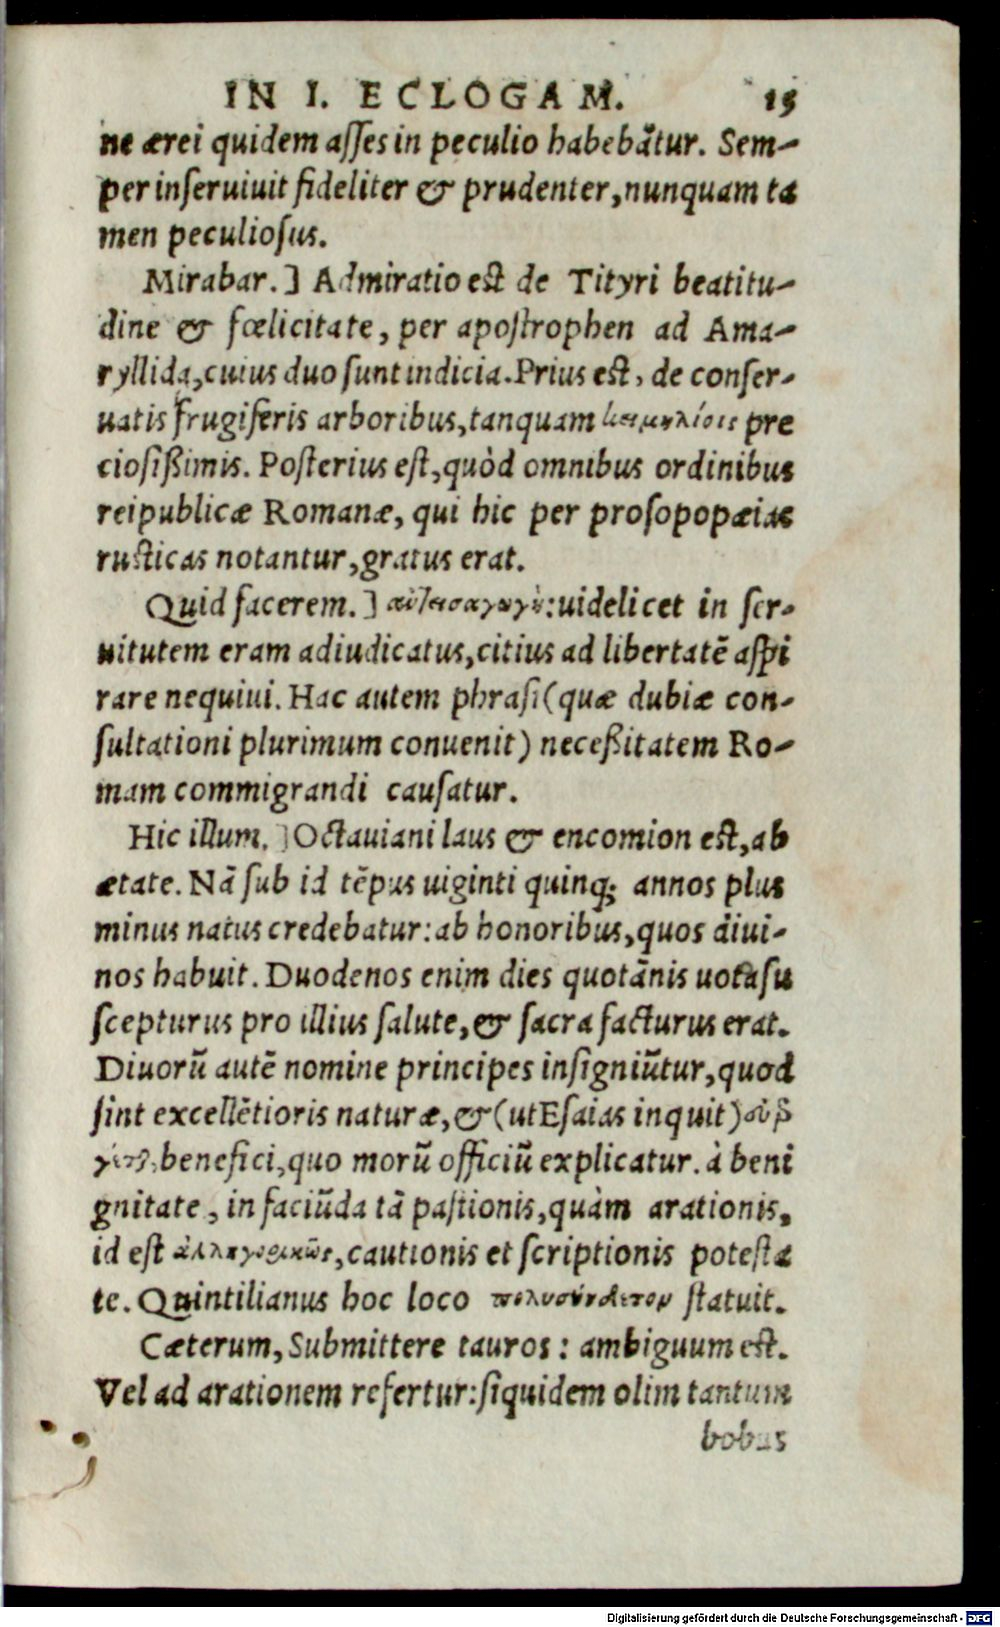 IN I. ECLOGAM. 15
ne ærei quidem asses in peculio habebãtur. Sem-
per inseruiuit fideliter & prudenter, nunquam ta
men peculiosus.
Mirabar.] Admiratio est de Tityri beatitu-
dine & fœlicitate, per apostrophen ad Ama-
ryllida, cuius duo sunt indicia. Prius est, de conser-
uatis frugiferis arboribus, tanquam κειμηλίοις pre
ciosißimis. Posterius est, quòd omnibus ordinibus
reipublicæ Romanæ, qui hic per prosopopæias
rusticas notantur, gratus erat.
Quid facerem.] : uidelicet in ser-
uitutem eram adiudicatus, citius ad libertatẽ aspi
rare nequiui. Hac autem phrasi (quæ dubiæ con-
sultationi plurimum conuenit) neceßitatem Ro-
mam commigrandi causatur.
Hic illum.] Octauiani laus & encomion est, ab
ætate. Nã sub id tẽpus uiginti quinq; annos plus
minus natus credebatur: ab honoribus, quos diui-
nos habuit. Duodenos enim dies quotãnis uota su
scepturus pro illius salute, & sacra facturus erat.
Diuorũ autẽ nomine principes insigniũtur, quod
sint excellẽtioris naturæ, & (ut Esaias inquit)
benefici, quo morũ officiũ explicatur. à beni
gnitate, in faciũda tã pastionis, quàm arationis,
id est ἀλληγορικῶς, cautionis et scriptionis potesta
te. Quintilianus hoc loco πολυσύνδετον statuit.
Cæterum, Submittere tauros: ambiguum est.
Vel ad arationem refertur: siquidem olim tantum
bobus
Digitalisierung gefördert durch die Deutsche Forschungsgemeinschaft - DFG